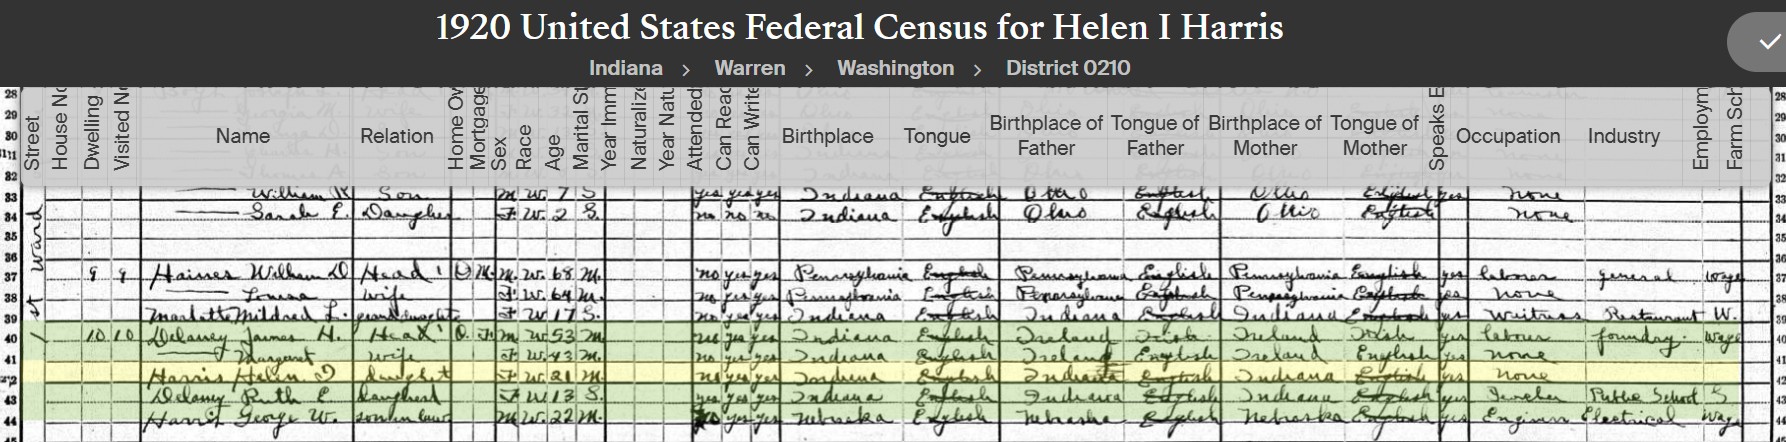 1920 United States Federal Census for Helen I Harris
Indiana > Warren > Washington > District 0210
Street House No Dwelling Visited No Name Relation Home Ow Mortgage Sex Race Age Marital St Year Imm Naturalize Year Natu Attended Can Read Can Write Birthplace Tongue Birthplace of Father Tongue of Father Birthplace of Mother Tongue of Mother Speaks E Occupation Industry Employm Farm Sch
28
29
30
31
32
33 William R Son M W. 7 S. yes yes yes Indiana English Ohio English Ohio English yes none
34 Sarah E. Daughter F W. 2 S. no no no Indiana English Ohio English Ohio English none
35
36
37 9 9 Haines William D Head 1 O M. M. W. 68 M. no yes yes Pennsylvania English Pennsylvania English Pennsylvania English yes laborer general wage
38 Louisa wife F W. 64 M. no yes yes Pennsylvania English Pennsylvania English Pennsylvania English yes none
39 Mildred L. F W 17 S. no yes yes Indiana English Indiana English Indiana English yes Waitress Restaurant W.
40 10 10 Delaney James H. Head 1 O. F M W 53 M no yes yes Indiana English Ireland Irish Ireland Irish yes labour foundry. wage
41 Margaret wife F W. 43 M. no yes yes Indiana English Ireland English Ireland English yes none
42 Harris Helen I F W. 21 M. no yes yes Indiana English Indiana English Indiana English yes none
43 Delaney Ruth E F W 13 S. yes yes yes Indiana English Indiana English Indiana English yes Public School S
44 Harris George W. son in law M W. 22 M. no yes yes Nebraska English Nebraska English Nebraska English yes Engineer Electrical Wage
1st Ward